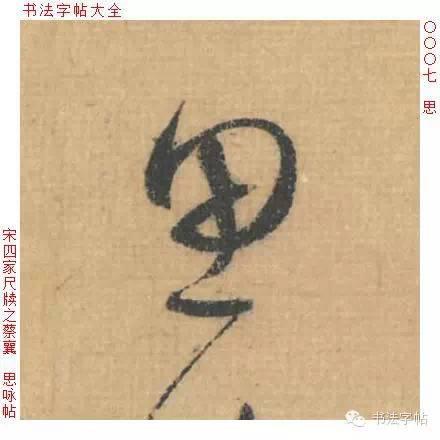 书法字帖大全
〇〇〇七 思
思
宋四家尺牍之蔡襄 思咏帖
书法字帖